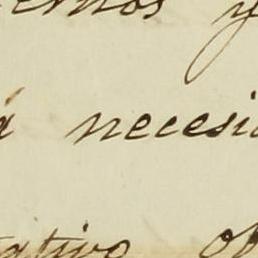 ernos y
á necesi
tativo ob